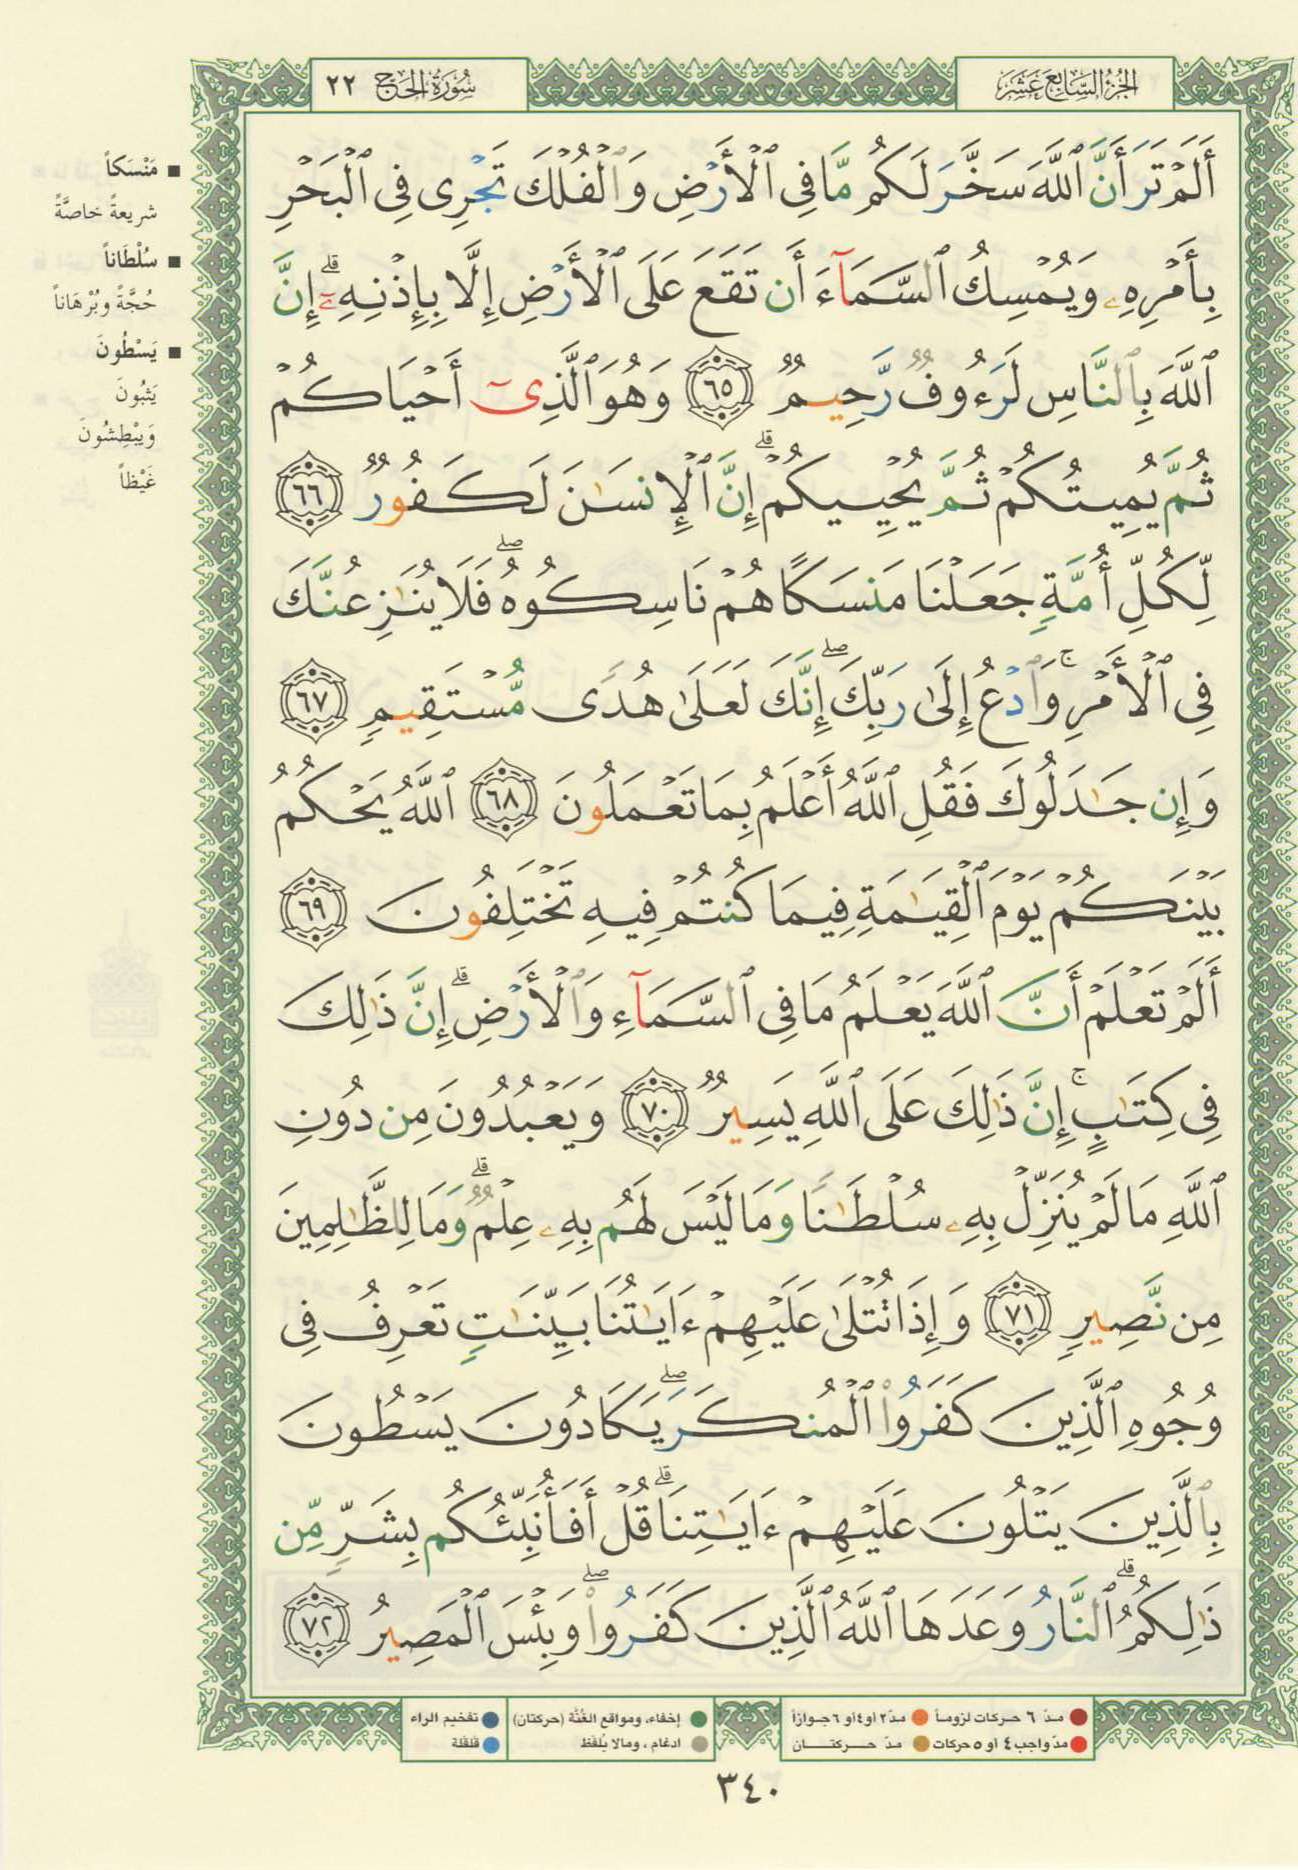 الجزء السابع عشر
سورة الحج ٢٢
أَلَمْ تَرَ أَنَّ ٱللَّهَ سَخَّرَ لَكُم مَّا فِى ٱلْأَرْضِ وَٱلْفُلْكَ تَجْرِى فِى ٱلْبَحْرِ
بِأَمْرِهِۦ وَيُمْسِكُ ٱلسَّمَآءَ أَن تَقَعَ عَلَى ٱلْأَرْضِ إِلَّا بِإِذْنِهِۦٓ ۗ إِنَّ
ٱللَّهَ بِٱلنَّاسِ لَرَءُوفٌ رَّحِيمٌ ٦٥ وَهُوَ ٱلَّذِىٓ أَحْيَاكُمْ
ثُمَّ يُمِيتُكُمْ ثُمَّ يُحْيِيكُمْ ۗ إِنَّ ٱلْإِنسَٰنَ لَكَفُورٌ ٦٦
لِّكُلِّ أُمَّةٍ جَعَلْنَا مَنسَكًا هُمْ نَاسِكُوهُ ۖ فَلَا يُنَٰزِعُنَّكَ
فِى ٱلْأَمْرِ ۚ وَٱدْعُ إِلَىٰ رَبِّكَ ۖ إِنَّكَ لَعَلَىٰ هُدًى مُّسْتَقِيمٍ ٦٧
وَإِن جَٰدَلُوكَ فَقُلِ ٱللَّهُ أَعْلَمُ بِمَا تَعْمَلُونَ ٦٨ ٱللَّهُ يَحْكُمُ
بَيْنَكُمْ يَوْمَ ٱلْقِيَٰمَةِ فِيمَا كُنتُمْ فِيهِ تَخْتَلِفُونَ ٦٩
أَلَمْ تَعْلَمْ أَنَّ ٱللَّهَ يَعْلَمُ مَا فِى ٱلسَّمَآءِ وَٱلْأَرْضِ ۗ إِنَّ ذَٰلِكَ
فِى كِتَٰبٍ ۚ إِنَّ ذَٰلِكَ عَلَى ٱللَّهِ يَسِيرٌ ٧٠ وَيَعْبُدُونَ مِن دُونِ
ٱللَّهِ مَا لَمْ يُنَزِّلْ بِهِۦ سُلْطَٰنًا وَمَا لَيْسَ لَهُم بِهِۦ عِلْمٌ ۗ وَمَا لِلظَّٰلِمِينَ
مِن نَّصِيرٍ ٧١ وَإِذَا تُتْلَىٰ عَلَيْهِمْ ءَايَٰتُنَا بَيِّنَٰتٍ تَعْرِفُ فِى
وُجُوهِ ٱلَّذِينَ كَفَرُوا۟ ٱلْمُنكَرَ ۖ يَكَادُونَ يَسْطُونَ
بِٱلَّذِينَ يَتْلُونَ عَلَيْهِمْ ءَايَٰتِنَا ۗ قُلْ أَفَأُنَبِّئُكُم بِشَرٍّ مِّن
ذَٰلِكُمُ ۗ ٱلنَّارُ وَعَدَهَا ٱللَّهُ ٱلَّذِينَ كَفَرُوا۟ ۖ وَبِئْسَ ٱلْمَصِيرُ ٧٢
■ مَنْسَكاً
شريعةً خاصَّةً
■ سُلْطَاناً
حُجَّةً وبُرْهَاناً
■ يَسْطُونَ
يَثِبُونَ
وَيبْطِشُونَ
غَيْظاً
مدّ ٦ حركات لزوماً ● مدّ ٢ او ٤ او ٦ جوازاً
مدّ واجب ٤ او ٥ حركات ● مدّ حركتان
إخفاء، ومواقع الغُنَّة (حركتان) ● تفخيم الراء
ادغام، ومالا يُلفَظ ● قلقلة
٣٤٠